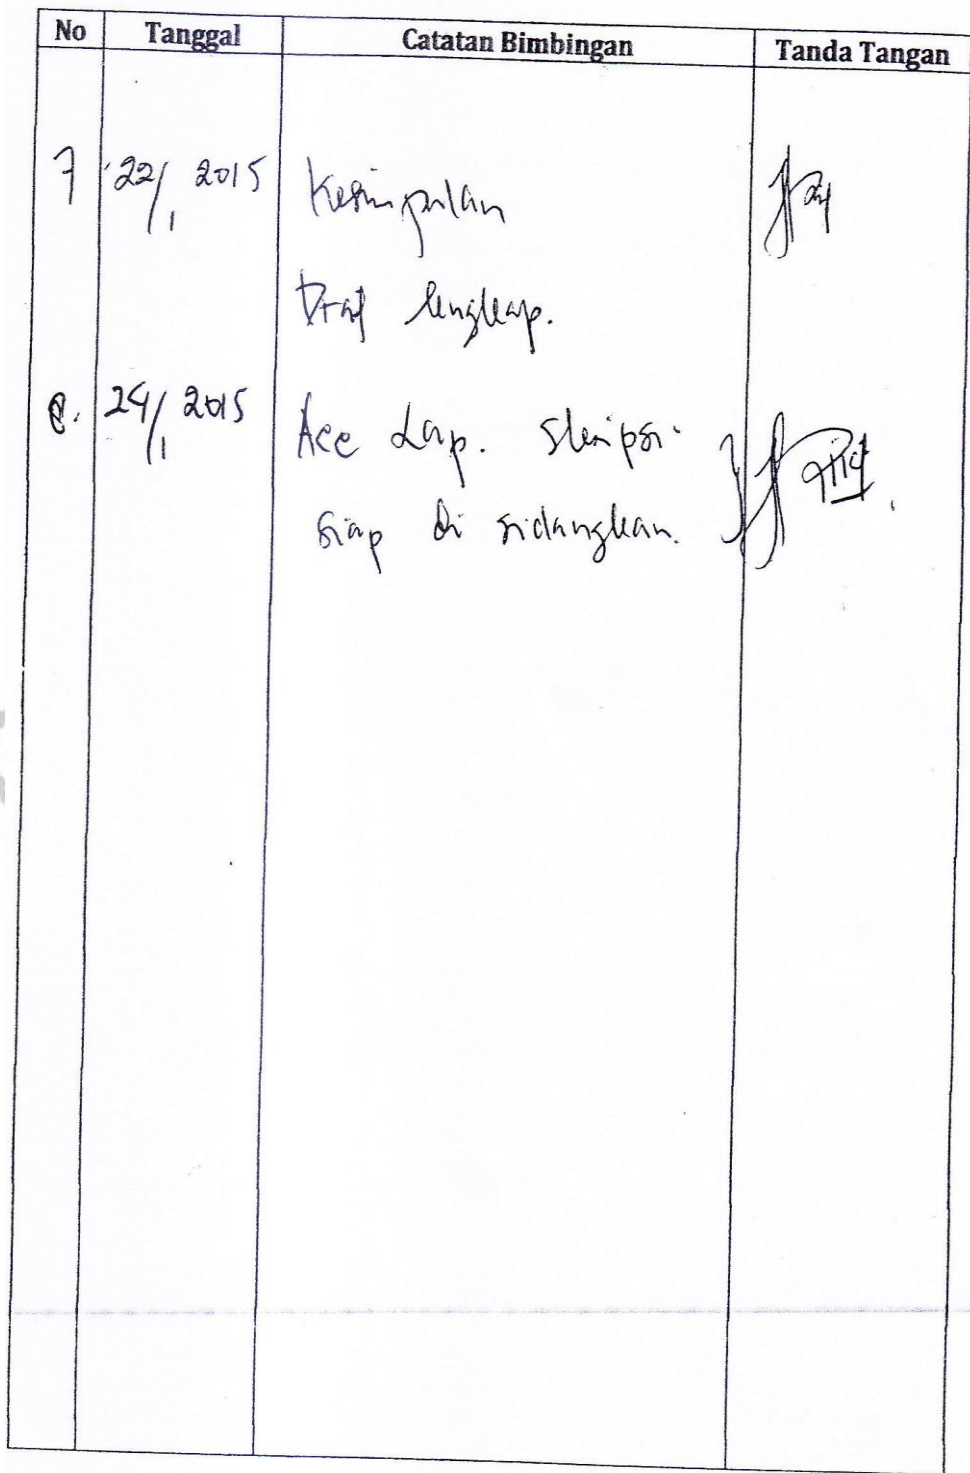 No Tanggal Catatan Bimbingan Tanda Tangan
7 22/1 2015 Kesimpulan
Draf lengkap.
8. 24/1 2015 Acc Lap. Skripsi
siap di sidangkan.